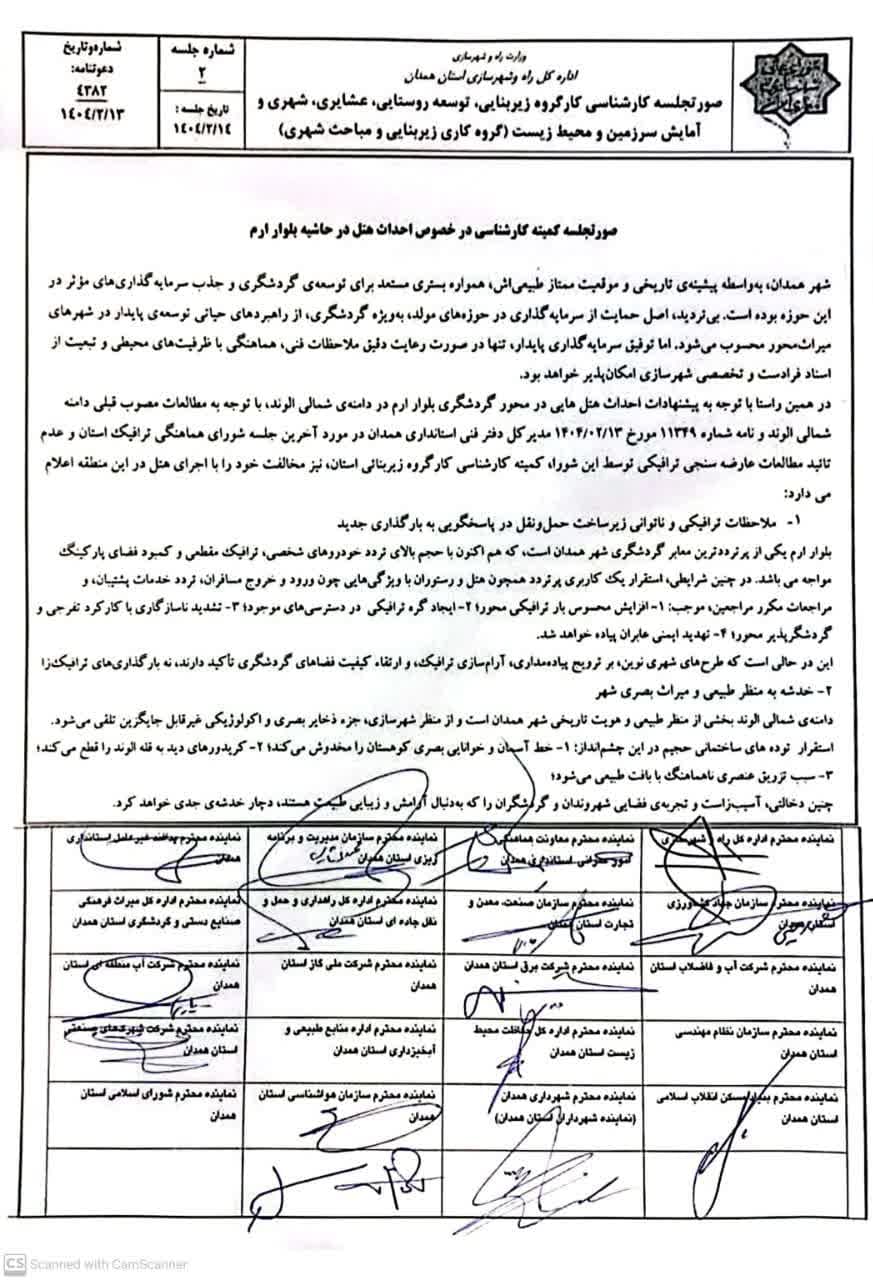 وزارت راه و شهرسازی
اداره کل راه وشهرسازی استان همدان
صورتجلسه کارشناسی کارگروه زیربنایی، توسعه روستایی، عشایری، شهری و
آمایش سرزمین و محیط زیست (گروه کاری زیربنایی و مباحث شهری)
شماره جلسه
۲
تاریخ جلسه :
۱۴۰۴/۲/۱۴
شماره‌وتاریخ
دعوتنامه:
۴۳۸۲
۱۴۰۴/۲/۱۳
صورتجلسه کمیته کارشناسی در خصوص احداث هتل در حاشیه بلوار ارم
شهر همدان، به‌واسطه پیشینه‌ی تاریخی و موقعیت ممتاز طبیعی‌اش، همواره بستری مستعد برای توسعه‌ی گردشگری و جذب سرمایه‌گذاری‌های مؤثر در
این حوزه بوده است. بی‌تردید، اصل حمایت از سرمایه‌گذاری در حوزه‌های مولد، به‌ویژه گردشگری، از راهبردهای حیاتی توسعه‌ی پایدار در شهرهای
میراث‌محور محسوب می‌شود. اما توفیق سرمایه‌گذاری پایدار، تنها در صورت رعایت دقیق ملاحظات فنی، هماهنگی با ظرفیت‌های محیطی و تبعیت از
اسناد فرادست و تخصصی شهرسازی امکان‌پذیر خواهد بود.
در همین راستا با توجه به پیشنهادات احداث هتل هایی در محور گردشگری بلوار ارم در دامنه‌ی شمالی الوند، با توجه به مطالعات مصوب قبلی دامنه
شمالی الوند و نامه شماره ۱۱۳۴۹ مورخ ۱۴۰۴/۰۲/۱۳ مدیرکل دفتر فنی استانداری همدان در مورد آخرین جلسه شورای هماهنگی ترافیک استان و عدم
تائید مطالعات عارضه سنجی ترافیکی توسط این شورا، کمیته کارشناسی کارگروه زیربنائی استان، نیز مخالفت خود را با اجرای هتل در این منطقه اعلام
می دارد:
۱- ملاحظات ترافیکی و ناتوانی زیرساخت حمل‌ونقل در پاسخگویی به بارگذاری جدید
بلوار ارم یکی از پرترددترین معابر گردشگری شهر همدان است، که هم اکنون با حجم بالای تردد خودروهای شخصی، ترافیک مقطعی و کمبود فضای پارکینگ
مواجه می باشد. در چنین شرایطی، استقرار یک کاربری پرتردد همچون هتل و رستوران با ویژگی‌هایی چون ورود و خروج مسافران، تردد خدمات پشتیبان، و
مراجعات مکرر مراجعین، موجب: ۱-افزایش محسوس بار ترافیکی محور؛ ۲- ایجاد گره ترافیکی در دسترسی‌های موجود؛ ۳- تشدید ناسازگاری با کارکرد تفرجی و
گردشگرپذیر محور؛ ۴- تهدید ایمنی عابران پیاده خواهد شد.
این در حالی است که طرح‌های شهری نوین، بر ترویج پیاده‌مداری، آرام‌سازی ترافیک، و ارتقاء کیفیت فضاهای گردشگری تأکید دارند، نه بارگذاری‌های ترافیک‌زا
۲- خدشه به منظر طبیعی و میراث بصری شهر
دامنه‌ی شمالی الوند بخشی از منظر طبیعی و هویت تاریخی شهر همدان است و از منظر شهرسازی، جزء ذخایر بصری و اکولوژیکی غیرقابل جایگزین تلقی می‌شود.
استقرار توده های ساختمانی حجیم در این چشم‌انداز: ۱- خط آسمان و خوانایی بصری کوهستان را مخدوش می‌کند؛ ۲- کریدورهای دید به قله الوند را قطع می‌کند؛
۳- سبب تزریق عنصری ناهماهنگ با بافت طبیعی می‌شود؛
چنین دخالتی، آسیب‌زاست و تجربه‌ی فضایی شهروندان و گردشگران را که به‌دنبال آرامش و زیبایی طبیعت هستند، دچار خدشه‌ی جدی خواهد کرد.
نماینده محترم اداره کل راه و شهرسازی
نماینده محترم معاونت هماهنگی
امور عمرانی استانداری همدان
نماینده محترم سازمان مدیریت و برنامه
ریزی استان همدان
نماینده محترم پدافند غیرعامل استانداری
همدان
نماینده محترم سازمان جهاد کشاورزی
استان همدان
نماینده محترم سازمان صنعت، معدن و
تجارت استان همدان
نماینده محترم اداره کل راهداری و حمل و
نقل جاده ای استان همدان
نماینده محترم اداره کل میراث فرهنگی
صنایع دستی و گردشگری استان همدان
نماینده محترم شرکت آب و فاضلاب استان
همدان
نماینده محترم شرکت برق استان همدان
نماینده محترم شرکت ملی گاز استان
همدان
نماینده محترم شرکت آب منطقه ای استان
همدان
نماینده محترم سازمان نظام مهندسی
استان همدان
نماینده محترم اداره کل حفاظت محیط
زیست استان همدان
نماینده محترم اداره منابع طبیعی و
آبخیزداری استان همدان
نماینده محترم شرکت شهرک‌های صنعتی
استان همدان
نماینده محترم بنیاد مسکن انقلاب اسلامی
استان همدان
نماینده محترم شهرداری همدان
(نماینده شهرداران استان همدان)
نماینده محترم سازمان هواشناسی استان
همدان
نماینده محترم شورای اسلامی استان
همدان
CS Scanned with CamScanner